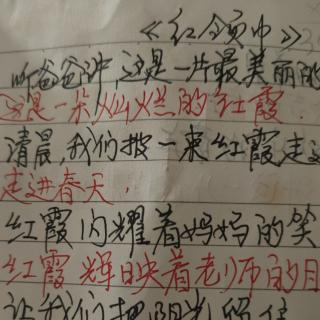 《红领巾》
听爸爸讲,这是一片最美丽的
这是一朵灿烂的红霞.
清晨,我们披一束红霞走
走进春天,
红霞闪耀着妈妈的笑
红霞辉映着老师的目
让我们把阳光留住